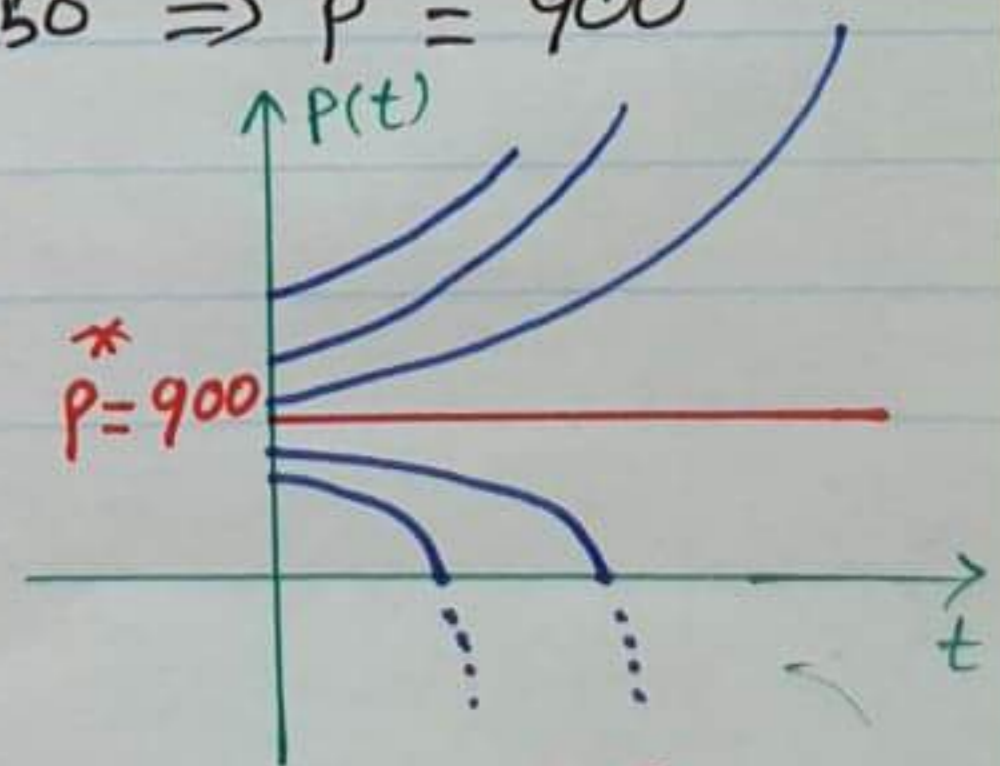 50 => p = 900
p(t)
*
p=900
t